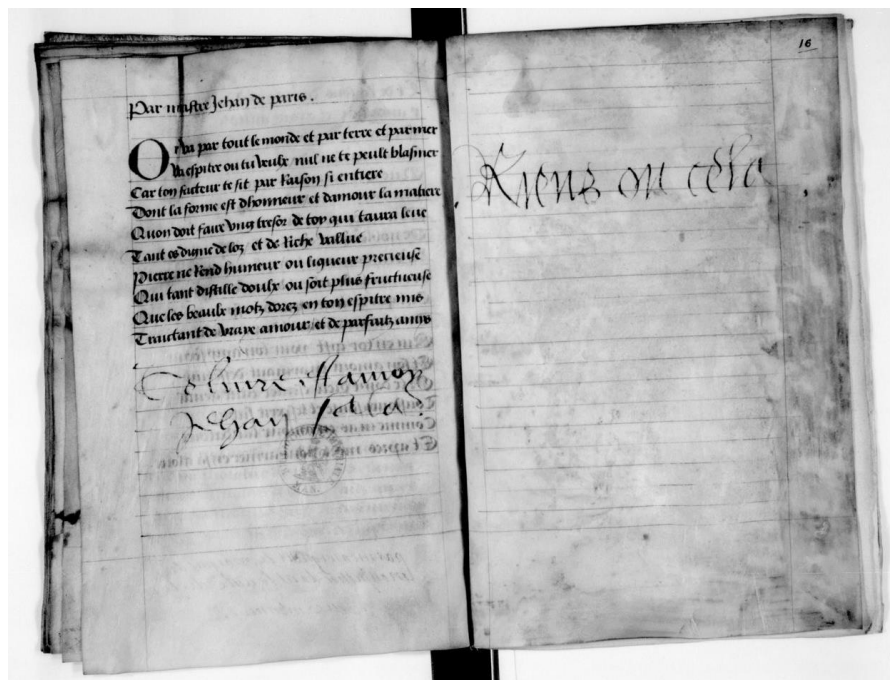 Par maistre Jehan de paris.
Or va par tout le monde et par terre et par mer
Va espitre ou tu veulx nul ne te peult blasmer
Car ton facteur te fit par Raison si entiere
Dont la forme est dhonneur et damour la matiere
Quon doit faire ung tresor de toy qui taura leue
Tant es digne de loz et de Riche vallue
Pierre ne Rend humeur ou liqueur precieuse
Qui tant distille doulx ou soit plus fructueuse
Que les beaulx motz dorez en ton espitre mis
Traictant de vraye amour et de parfaitz amys
Ce livre
Jehan
16
Riens ou cela